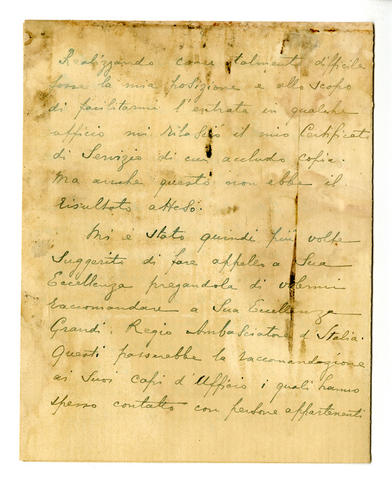 Realizzando come talmente difficile
fosse la mia posizione e allo scopo
di facilitarmi l'entrata in qualche
ufficio mi rilasciò il mio Certificat
di Servizio di cui accludo copia.
Ma anche questo non ebbe il
risultato atteso.
Mi è stato quindi più volte
suggerito di fare appello a Sua
Eccellenza pregandola di volermi
raccomandare a Sua Eccellenza
Grandi, Regio Ambasciatore d'Italia.
Questi passerebbe la raccomandazione
ai suoi capi d'Ufficio i quali hanno
spesso contatto con persone appartenenti